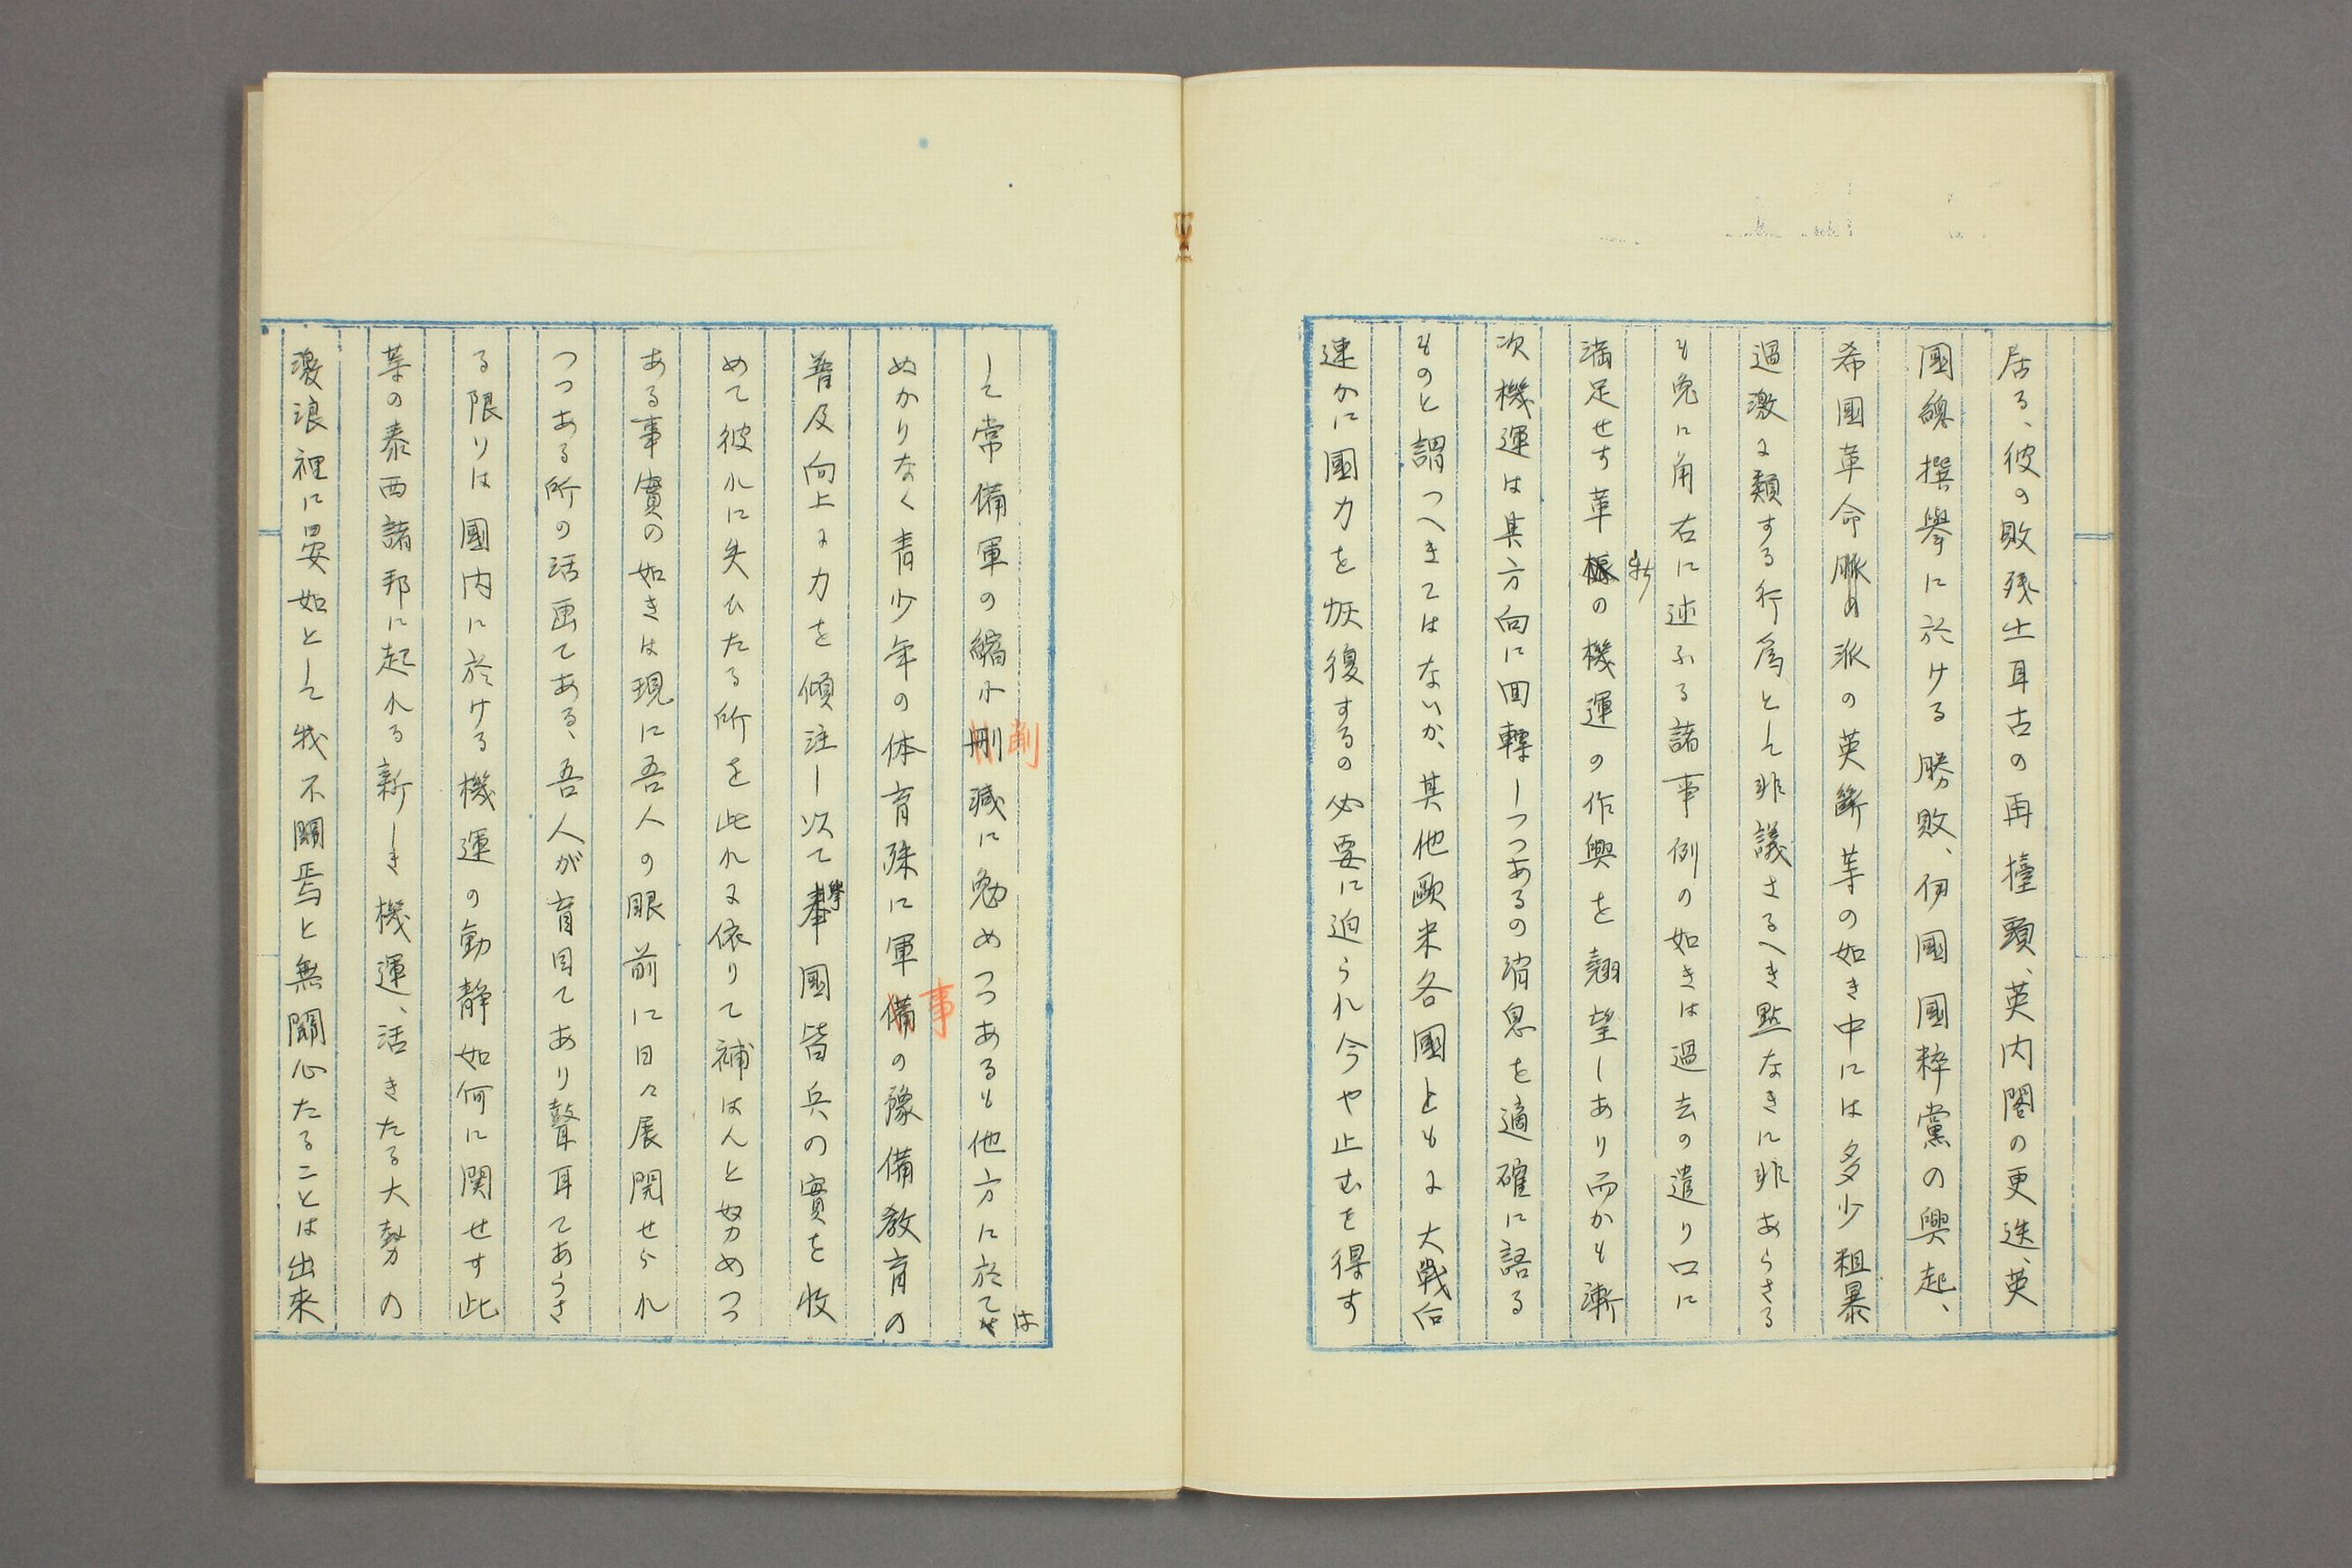 居る、彼の敗残土耳古の再擡頭、英内閣の更迭、英
國総撰擧に於ける勝敗、伊國國粹黨の興起、
希國革命派の英斷等の如き中には多少粗暴
過激に類する行爲として非議さるへき點なきに非あらさる
も兎に角右に述ふる諸事例の如きは過去の遣り口に
満足せす革新の機運の作興を翹望しあり而かも漸
次機運は其方向に回轉しつつあるの消息を適確に語る
ものと謂つへきてはないか、其他歐米各國ともに大戰后
速かに國力を恢復するの必要に迫られ今や止むを得す
して常備軍の縮小削減に勉めつつあるも他方に於ては
ぬかりなく青少年の体育殊に軍事の豫備教育の
普及向上に力を傾注し以て擧國皆兵の實を收
めて彼れに失ひたる所を此れに依りて補はんと努めつつ
ある事實の如きは現に吾人の眼前に日々展開せられ
つつある所の活画てある、吾人が盲目てあり聾耳てあらさ
る限りは國内に於ける機運の動静如何に関せす此
等の泰西諸邦に起れる新しき機運、活きたる大勢の
激浪裡に晏如として我不關焉と無關心たることは出來